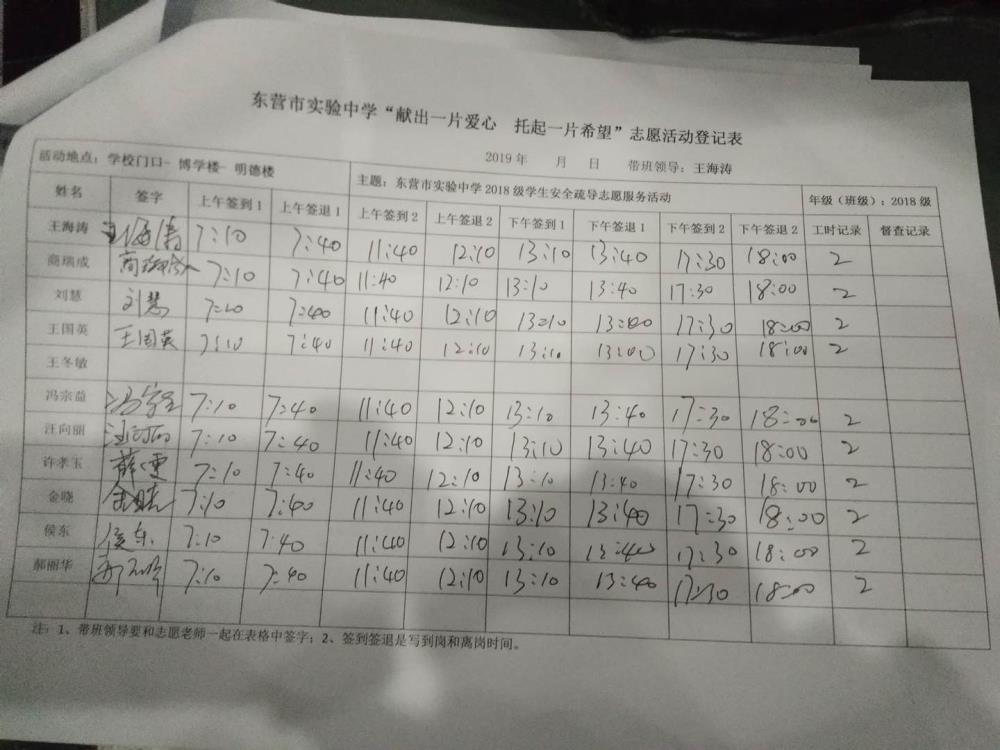 东营市实验中学“献出一片爱心 托起一片希望”志愿活动登记表
2019年 月 日 带班领导：王海涛
活动地点：学校门口- 博学楼- 明德楼 主题：东营市实验中学2018级学生安全疏导志愿服务活动 年级（班级）：2018级
姓名 签字 上午签到1 上午签退1 上午签到2 上午签退2 下午签到1 下午签退1 下午签到2 下午签退2 工时记录 督查记录
王海涛 王海涛 7:10 7:40 11:40 12:10 13:10 13:40 17:30 18:00 2
商瑞成 商瑞成 7:10 7:40 11:40 12:10 13:10 13:40 17:30 18:00 2
刘慧 刘慧 7:20 7:40 11:40 12:10 13:10 13:00 17:30 18:00 2
王国英 王国英 7:10 7:40 11:40 12:10 13:10 13:00 17:30 18:00 2
王冬敏
冯宗益 7:10 7:40 11:40 12:10 13:10 13:40 17:30 18:00 2
汪向丽 汪向丽 7:10 7:40 11:40 12:10 13:10 13:40 17:30 18:00 2
许孝玉 7:10 7:40 11:40 12:10 13:10 13:40 17:30 18:00 2
金晓 金晓 7:10 7:40 11:40 12:10 13:10 13:40 17:30 18:00 2
侯东 侯东 7:10 7:40 11:40 12:10 13:10 13:40 17:30 18:00 2
郝丽华 7:10 7:40 11:40 12:10 13:10 13:40 17:30 18:00 2
注：1、带班领导要和志愿老师一起在表格中签字；2、签到签退是写到岗和离岗时间。